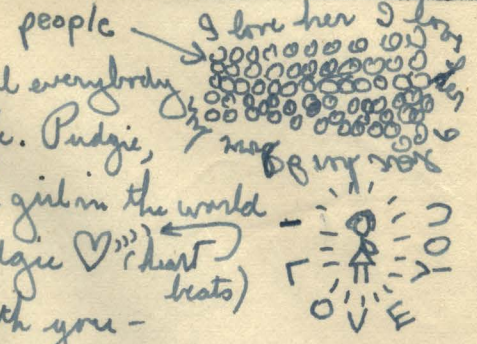 people
I love her I love
everybody
Pudgie,
girl in the world
(heart
beats)
you –
I LOVE YOU